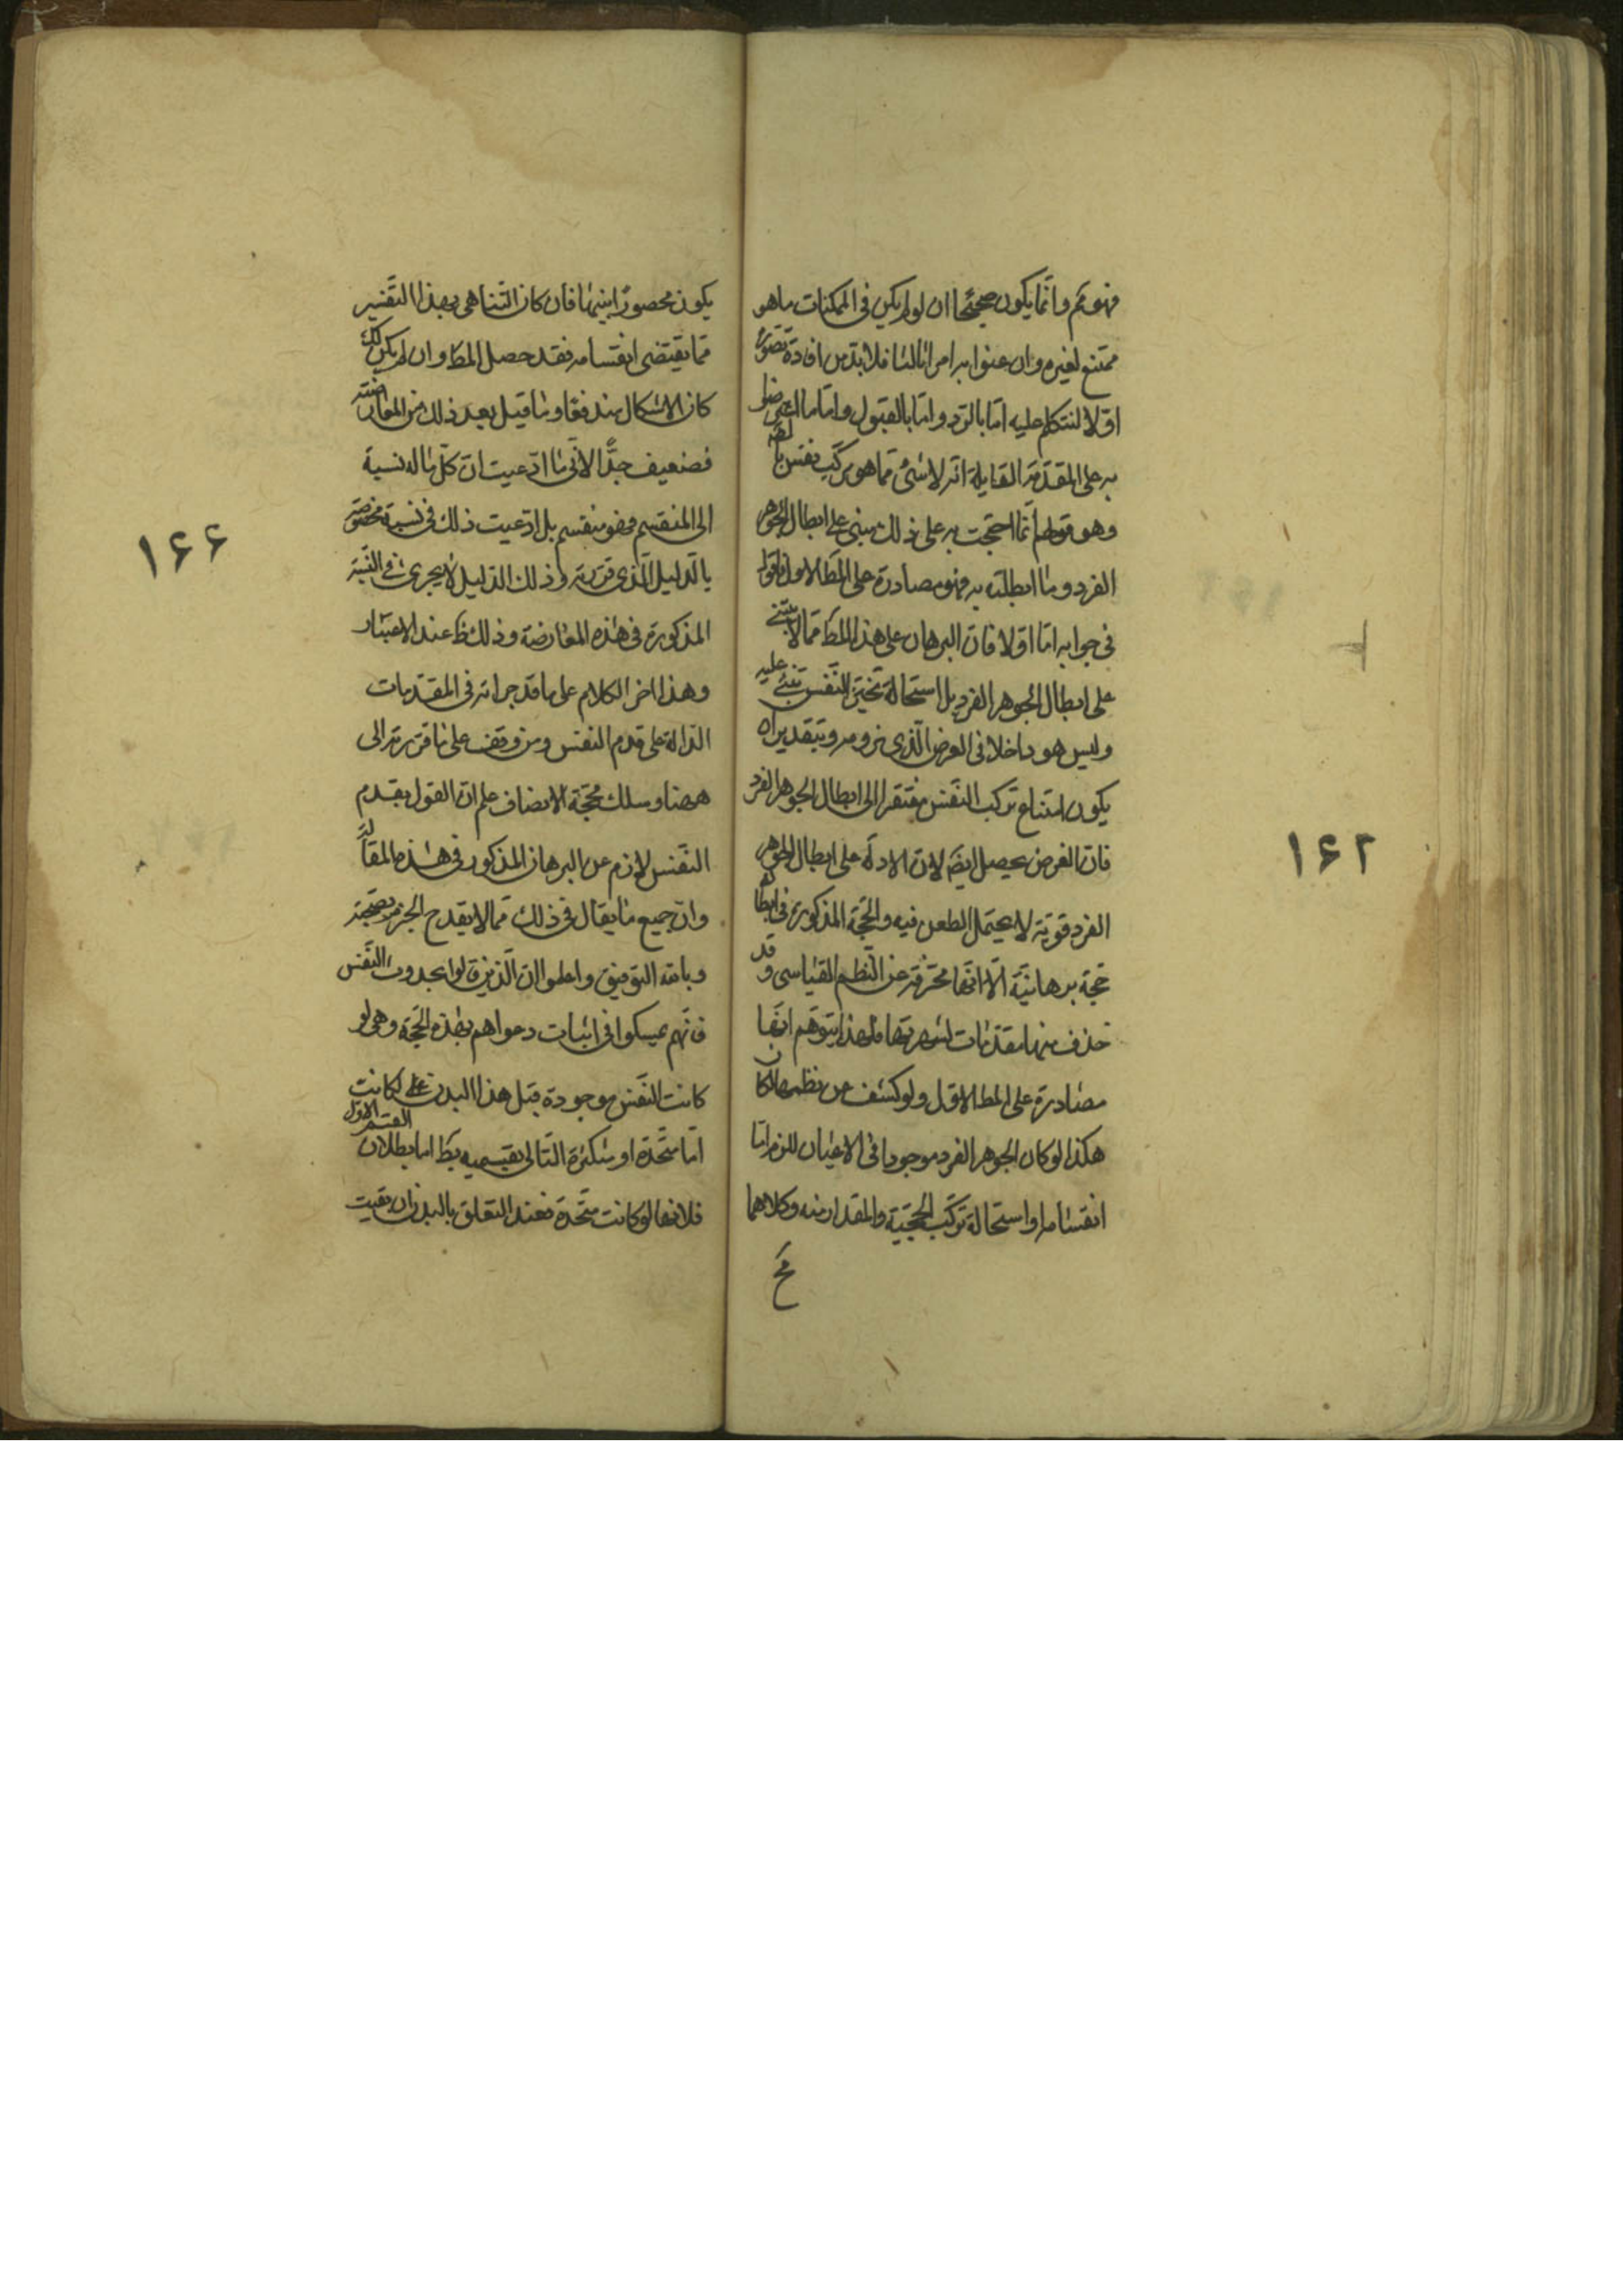 فهو مم وانما يكون صحيحا ان لو لم يكن فى الممكنات ما هو
ممتنع لغيره وان عنوا به امرا ثالثا فلا بد من افادة تصوره
اولا لنتكلم عليه اما بالرد واما بالقبول واما ما اعترضوا
به على المقدمة القايلة انه لا شئ مما هو مركب بنفس ناطقة
وهو قولهم انما احتججت به على ذلك مبنى على ابطال الجوهر
الفرد وما ابطلته به فهو مصادرة على المط الاول فاقول
فى جوابه اما اولا فان البرهان على هذا المط مما لا يبتنى
على ابطال الجوهر الفرد بل استحالة تحيز النفس تبتنى عليه
وليس هو داخلا فى الغرض الذى نرومه وبتقدير ان
يكون امتناع تركب النفس مفتقرا الى ابطال الجوهر الفرد
فان الغرض يحصل ايضا لان الادلة على ابطال الجوهر
الفرد قوية لا يحتمل الطعن فيه والحجة المذكورة فى ابطاله
حجة برهانية الا انها محرفة عن النظم القياسى وقد
حذف منها مقدمات لشهرتها فلهذا يتوهم انها
مصادرة على المط الاول ولو كشف عن نظمها لكان
هكذا لو كان الجوهر الفرد موجودا فى الاعيان للزم اما
انقسامه او استحالة تركب الحجمية والمقدار منه وكلاهما
مح
١٦٢
يكون محصورا بينهما فان كان التناهى بهذا التفسير
مما يقتضى انقسامه فقد حصل المط وان لم يكن كك
كان الاشكال مندفعا وما قيل بعد ذلك من المعارضة
فضعيف جدا لانى ما ادعيت ان كل ما له نسبة
الى المنقسم فهو منقسم بل ادعيت ذلك فى نسبة مخصوصة
بالدليل الذى قررته وذلك الدليل لا يجرى فى النسبة
المذكورة فى هذه المعارضة وذلك ظ عند الاعتبار
وهذا اخر الكلام على ما قد جرا انه فى المقدمات
الدالة على قدم النفس ومن وقف على ما قررته الى
ههنا وسلك محجة الانصاف علم ان القول بقدم
النفس لازم عن البرهان المذكور فى هذه المقالة
وان جميع ما يقال فى ذلك مما لا يقدح الجزم بصحته
وبالله التوفيق واعلموا ان الذين قالوا بحدوث النفس
فانهم تمسكوا فى اثبات دعواهم بهذه الحجة وهى لو
كانت النفس موجودة قبل هذا البدن لكانت
اما متحدة او متكثرة التالى بقسميه بط اما بطلان القسم الاول
فلانها لو كانت متحدة فعند التعلق بالبدن ان بقيت
١٦٦